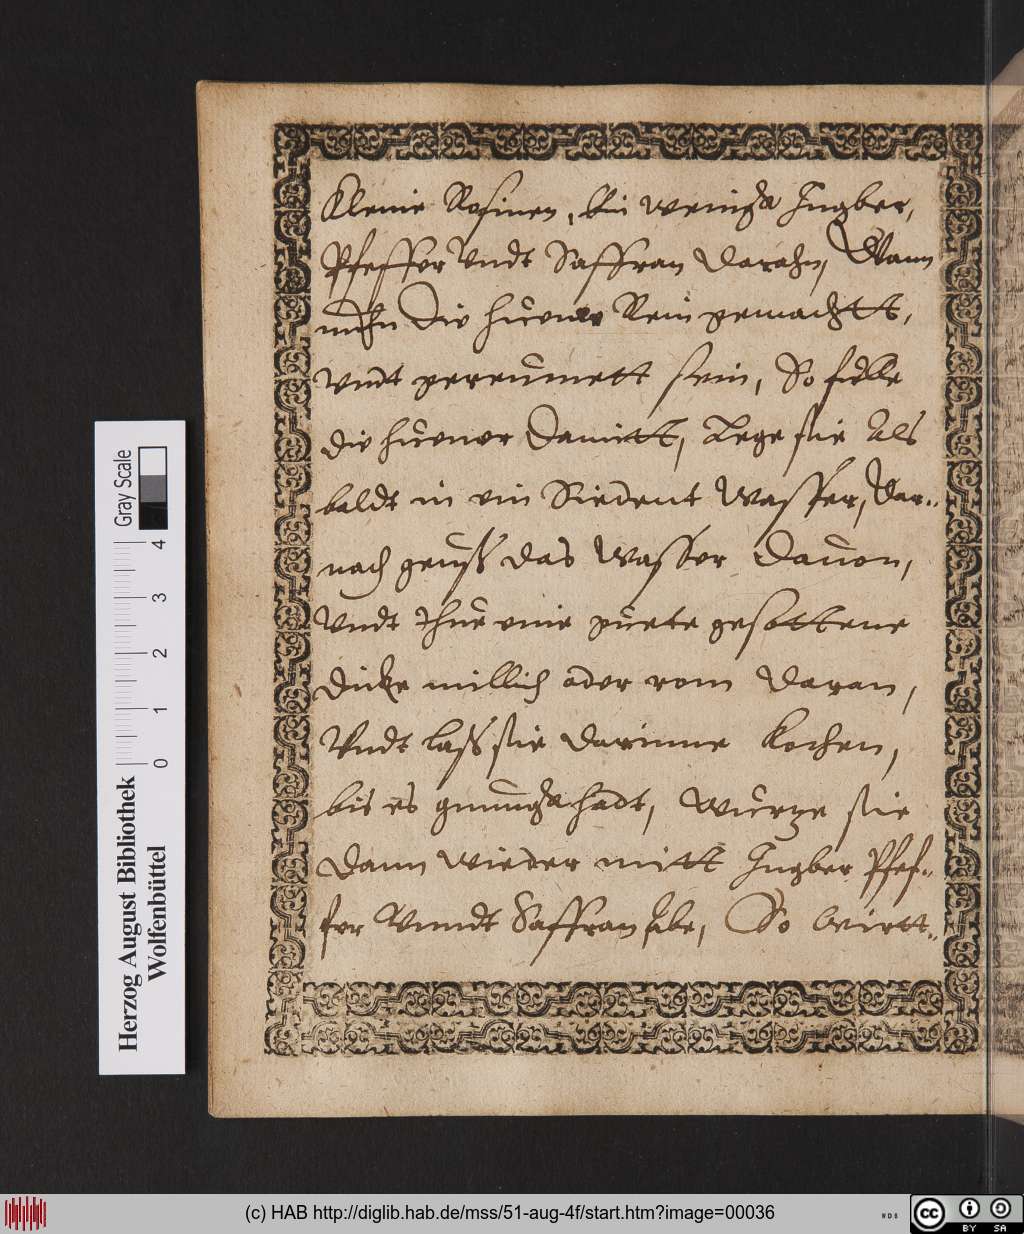 Kleine Rosinen, Ein wenigk Ingber,
Pfeffer Vndt Saffran darahn, Wann
nuhn die huener Rein gemachtt,
vndt gereumett sein, So fulle
die huener damitt, Lege sie Als
baldt in ein Siedent Wasser, dar-
nach geuß das Wasser dauon,
Vndt thue eine guete gesottene
dicke millich oder rom daran,
Vndt laß sie darinne Kochen,
bis es genugk hadt, wurtze sie
dann wieder mitt Ingber Pfef-
fer Vnndt Saffran abe, So wirtt-
Herzog August Bibliothek
Wolfenbüttel
Gray Scale
0 1 2 3 4
(c) HAB http://diglib.hab.de/mss/51-aug-4f/start.htm?image=00036
cc BY SA